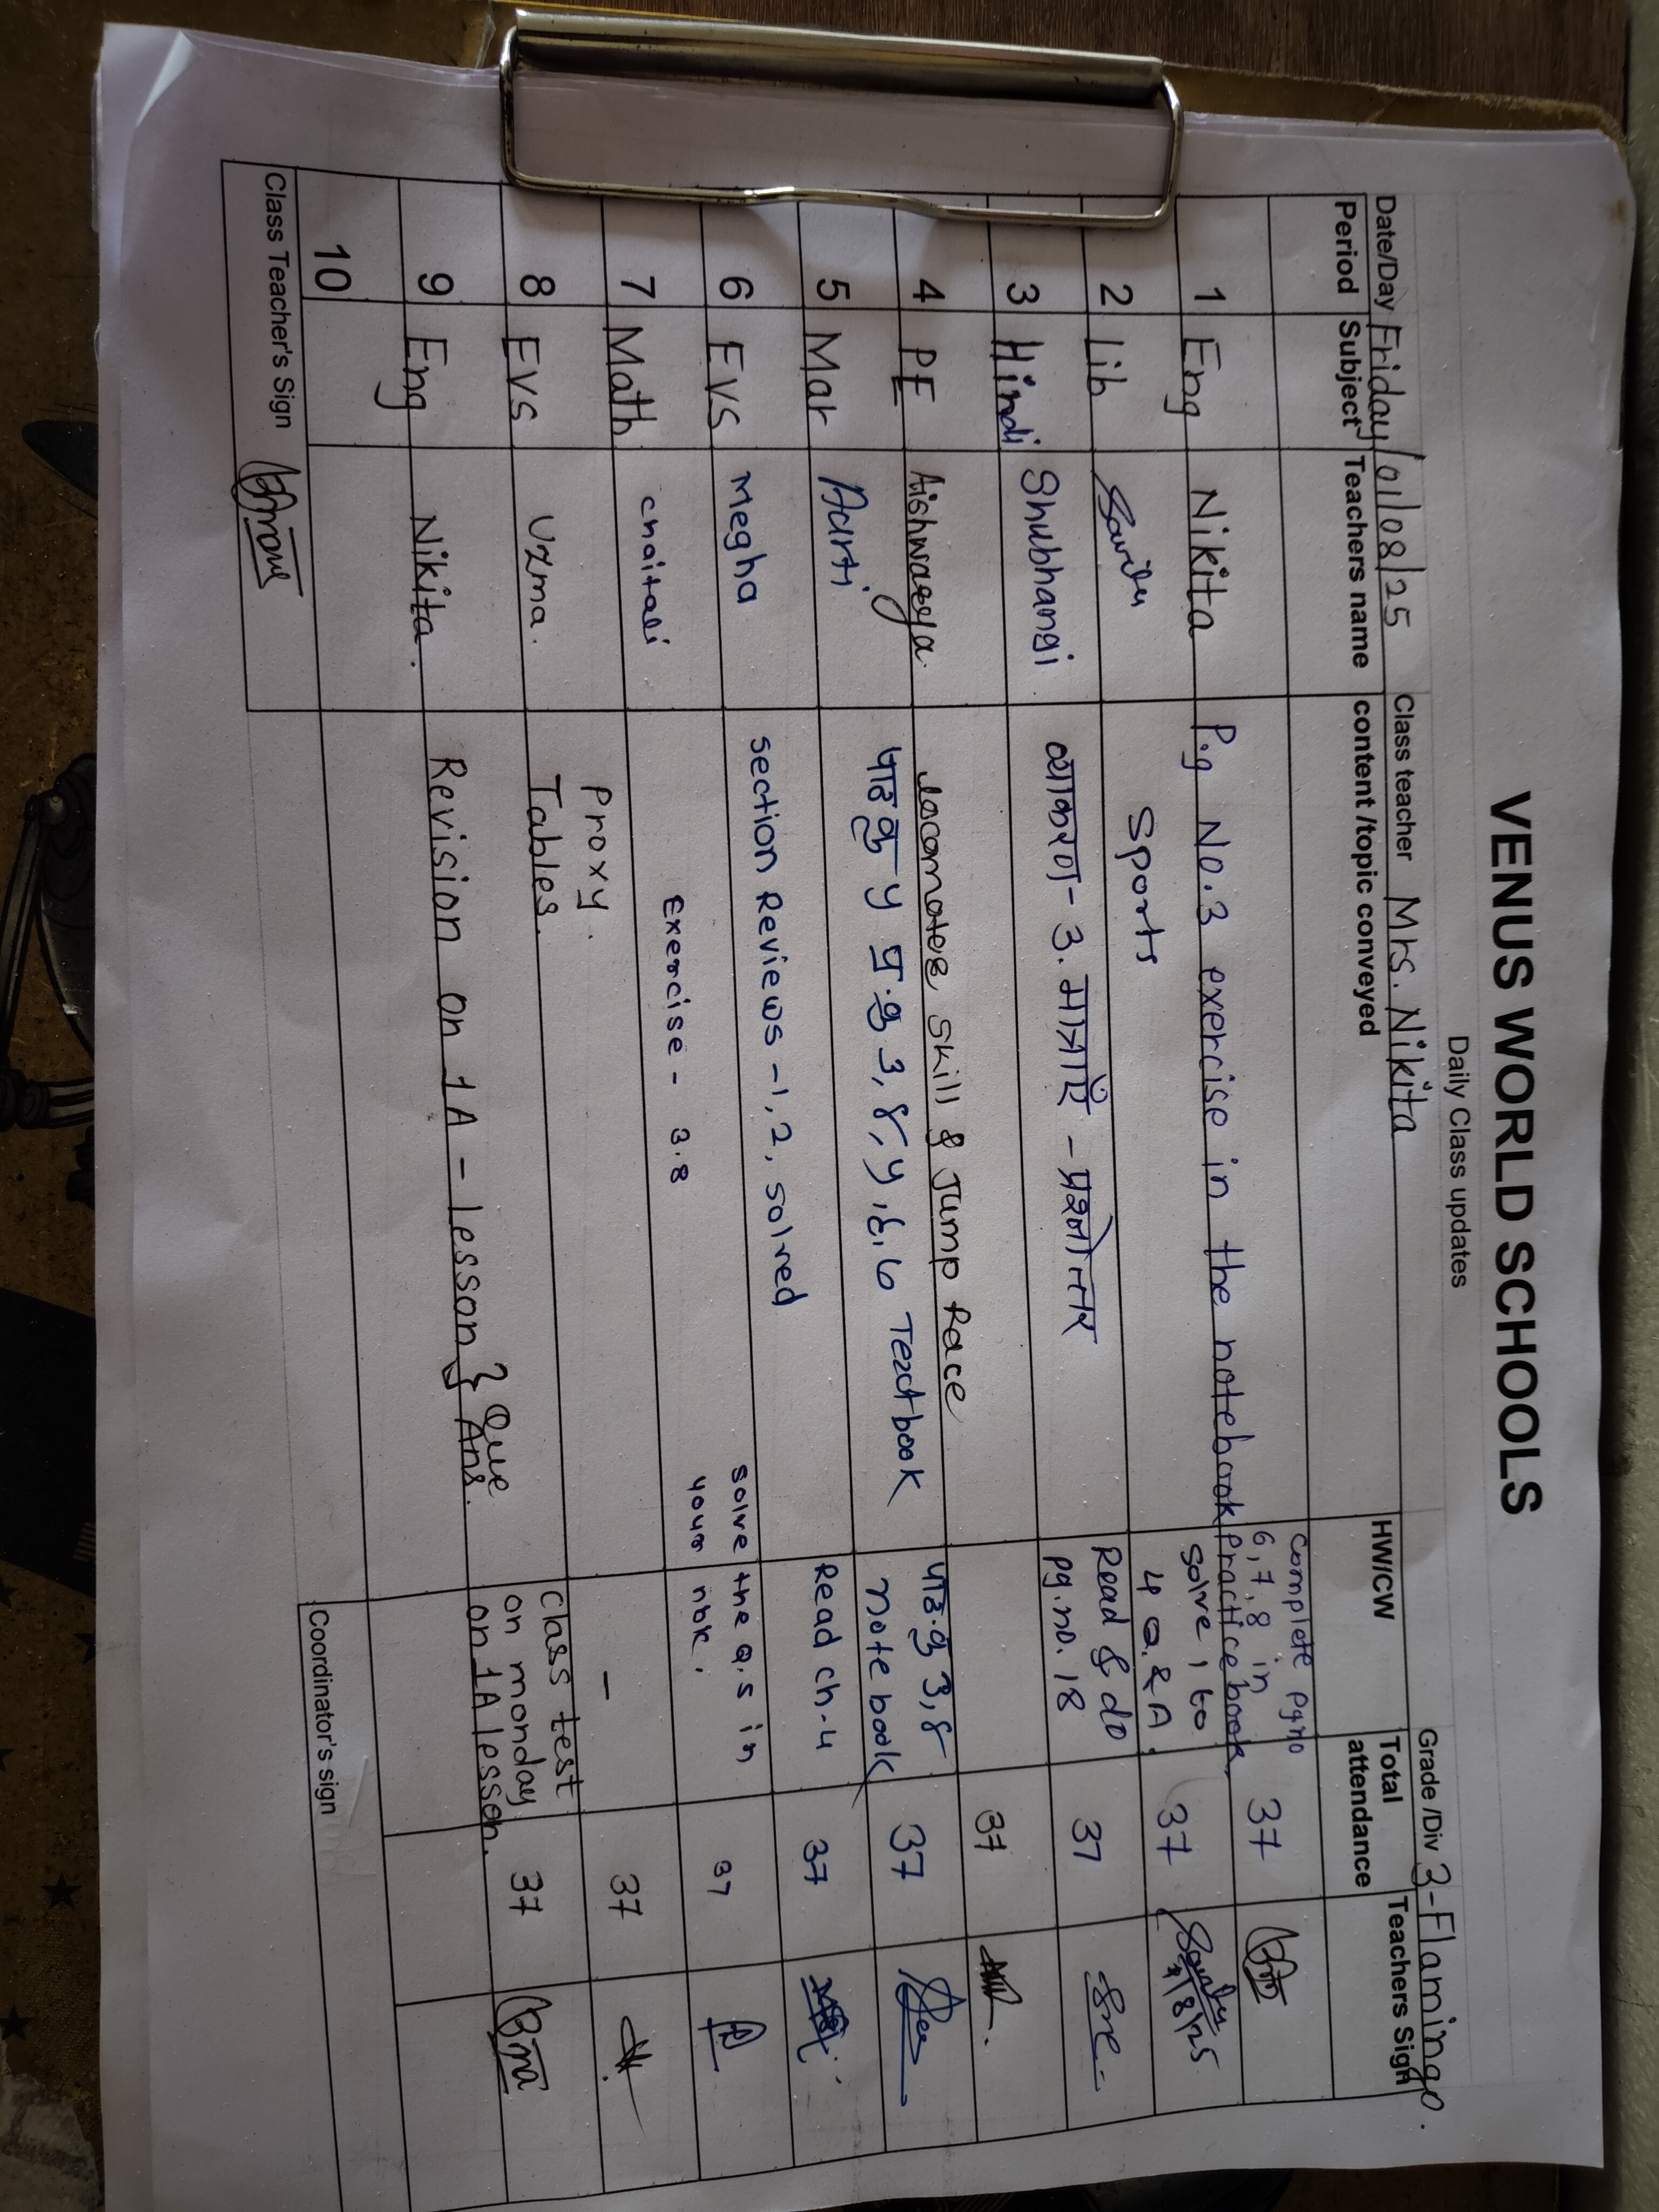 VENUS WORLD SCHOOLS
Daily Class updates
Date/Day Friday/01/08/25 Class teacher Mrs. Nikita Grade /Div 3-Flamingo.
Period Subject Teachers name content /topic conveyed HW/CW Total attendance Teachers Sign
1 Eng Nikita P.g No.3 exercise in the notebook complete pgno 6,7,8 in practice book. 37
2 lib Sports solve 1 to 4 Q.&A. 37
3 Hindi Shubhangi व्याकरण- 3. मात्राएँ - प्रश्नोत्तर Read & do pg.no.18 37
4 PE Aishwarya. Skill & Jump Race 37
5 Mar Aarti पाठ क्र ५ प्र.क्र ३, ४, ५, ६, ७ Textbook पाठ.क्र ३,४ notebook 37
6 EVS Megha section Reviews -1, 2, solved Read ch-4 37
7 Math chaitali Exercise - 3.8 solve the Q.s in your nbk. 37
8 EVS Uzma. Proxy. Tables. - 37
9 Eng Nikita. Revision on 1A - lesson } Que Ans. Class test on monday on 1A lesson. 37
10
Class Teacher's Sign Coordinator's sign